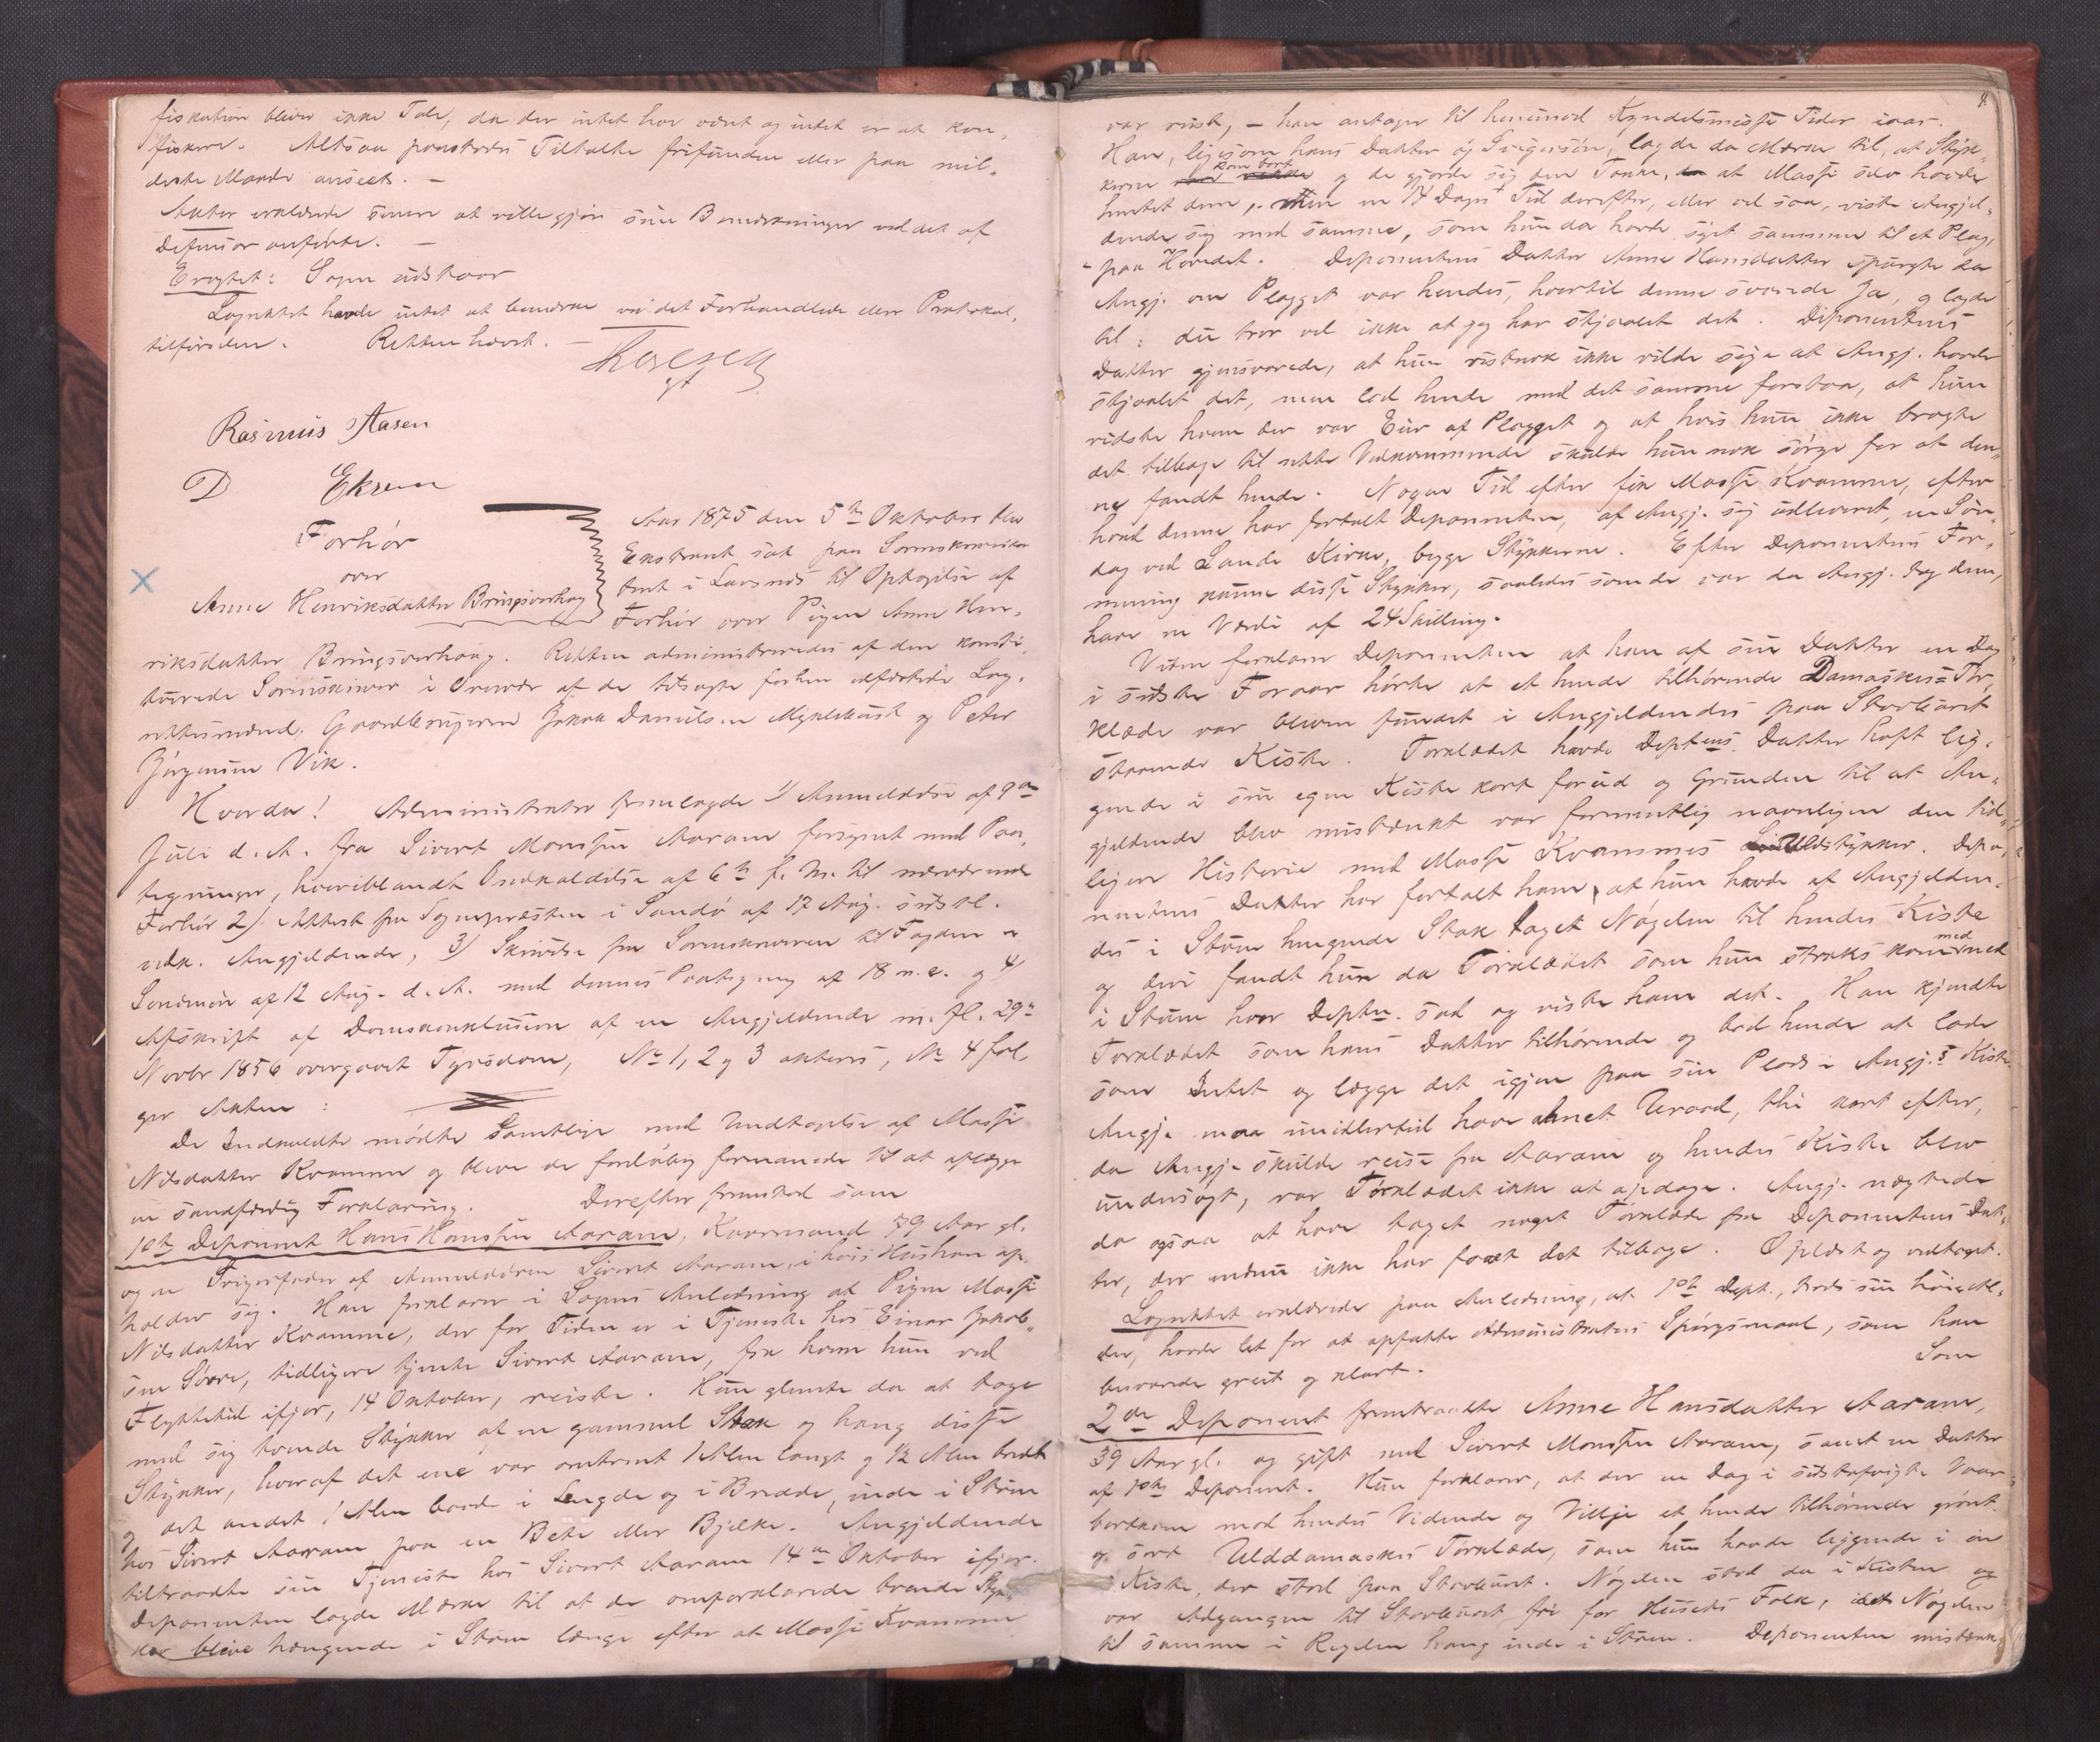 fiskation bliver ikke Tale, da der intet har været og intet er at kon-
fiskere. Altsaa paastodes Tiltalte frifunden eller paa mil-
deste Maade anseet. —
Aktor erklærede senere at ville gjøre sine Bemærkninger ved det af
Defensor anførte. —
Eragtet: Sagen udstaar
Lagrettet havde intet at bemærke ved det Forhandlede eller Protokol-
tilførslen. Retten hævet. —
Rasmus Aasen
D Eksem
Forhør
over
Anne Henriksdatter Bringsverhoug
Aar 1875 den 5te Oktober blev
Extraret sat paa Sorenskriver
tomt i Larsnes til Optagelse af
Forhør over Pigen Anne Hen-
riksdatter Bringsverhoug. Retten administreredes af den konsti-
tuerede Sorenskriver i Overvær af de tilsagte forhen edfæstede Lag-
rettesmænd, Gaardbrugerne Jakob Danielsen Myklebust og Peter
Jørgensen Vik.
Hvorda! Administrator fremlagde 1/ Anmeldelse af 9de
Juli d. A. fra Sivert Monssen Aaram forsynet med Paa-
tegninger, hvoriblandt Indkaldelse af 6te f. M. til nærværende
Forhør 2/ Attest fra Sognepræsten i Sandø af 17 Aug. sidstl.
vedk. Angjældende, 3/ Skrivelse fra Sorenskriveren til Fogden i
Søndmør af 12 Aug. d. A. med dennes Paategning af 18 n. e. og 4/
Afskrift af Domskonklusion af en Angjældende m. fl. 29de
Novbr 1856 overgaaet Tyvsdom, No 1, 2 og 3 akteres, No 4 føl-
ger Akten:
De Indkaldte mødte samtlige med Undtagelse af Massi
Nilsdatter Kvamme og bleve de foreløbig formanede til at aflægge
en sandfærdig Forklaring. Derefter fremstod som
1ste Deponent Hans Hanssen Aaram, Kaarmand 79 Aar gl.
og en Svigerfader af Anmelderen Sivert Aaram, i hvis Hus han op-
holder sig. Han forklarer i Sagens Anledning at Pigen Massi
Nilsdatter Kvamme, der for Tiden er i Tjeneste hos Einar Jakob-
sen Søvre, tidligere tjente Sivert Aaram, fra hvem hun ved
Flyttetid ifjor, 14 Oktober, reiste. Hun glemte da at tage
med sig tvende Stykker af en gammel Stak og hang disse
Stykker, hvoraf det ene var omtrent 1 Alen langt og 1/2 Alen bredt
og det andet 1 Alen baade i Længde og i Bredde, inde i Stuen
hos Sivert Aaram paa en Bete eller Bjælke. Angjældende
tiltraadte sin Tjeneste hos Sivert Aaram 14de Oktober ifjor.
Deponenten lagde Mærke til at de omforklarede tvende Styk-
ker bleve hængende i Stuen længe efter at Massi Kvamme
var reist, — han antager til henimod Kyndelsmesse Tider iaar.
Han, ligesom hans Datter og Svigersøn, lagde da Mærke til, at Styk-
kerne kom bort og de gjorde sig den Tanke, at Massi selv havde
hentet dem, men en 14 Dages Tid derefter, eller vel saa, viste Angjæl-
dende sig med samme, som hun da havde syet sammen til et Plag
paa Hovedet. Deponentens Datter Anne Hansdatter spurgte da
Angj. om Plagget var hendes, hvortil denne svarede Ja, og lagde
til: du tror vel ikke at jeg har stjaalet det. Deponentens
Datter gjensvarede, at hun vistnok ikke vilde sige at Angj. havde
stjaalet det, men lod hende med det samme forstaa, at hun
vidste hvem der var Eier af Plagget og at hvis hun ikke bragte
det tilbage til rette Vedkommende skulde hun nok sørge for at den-
ne fandt hende. Nogen Tid efter fik Massi Kvamme, efter
hvad denne har fortalt Deponenten, af Angj. sig udleveret, en Søn-
dag ved Sande Kirke, begge Stykkerne. Efter Deponentens For-
mening kunne disse Stykker, saaledes som de var da Angj. tog dem,
have en Værdi af 24 Skilling.
Videre forklarer Deponenten at han af sin Datter en Dag
i sidste Foraar hørte at et hende tilhørende Damaskes-For-
klæde var bleven fundet i Angjældendes paa Stavburet
staaende Kiste. Forklædet havde Deptens Datter havt lig-
gende i sin egen Kiste kort forud og Grunden til at An-
gjældende blev mistænkt var formentlig navnligen den tid-
ligere Historie med Massi Kvammes Klædstykker. Depo-
nentens Datter har fortalt ham, at hun havde af Angjælden-
des i Stuen hængende Stak taget Nøgelen til hendes Kiste
og deri fandt hun da Forklædet som hun straks kom med ned
i Stuen hvor Deptn. sad og viste ham det. Han kjendte
Forklædet som hans Datter tilhørende og bad hende at lade
som Intet og lægge det igjen paa sin Plads i Angj.s Kiste.
Angj. maa imidlertid have ahnet Uraad, thi kort efter,
da Angj. skulde reise fra Aaram og hendes Kiste blev
undersøgt, var Forklædet ikke at opdage. Angj. nægtede
da ogsaa at have taget noget Forklæde fra Deponentens Dat-
ter, der endnu ikke har faaet det tilbage. Oplæst og vedtaget.
Lagrettet erklærede paa Anledning, at 1ste Dept., trods sin høie Al-
der, havde let for at opfatte Administrators Spørgsmaal, som han
besvarede greit og klart. Som
2den Deponent fremtraadte Anne Hansdatter Aaram,
39 Aar gl. og gift med Sivert Monssen Aaram, samt en Datter
af 1ste Deponent. Hun forklarer, at der en Dag i sidstafvigte Vaar
bortkom mod hendes Vidende og Villje et hende tilhørende grønt
og sort Ulddamaskes Forklæde, som hun havde liggende i en
Kiste, der stod paa Stavburet. Nøgelen stod da i Kisten og
var Adgangen til Stavburet fri for Husets Folk, idet Nøgelen
til samme i Regelen hang inde i Stuen. Deponenten mistænk-